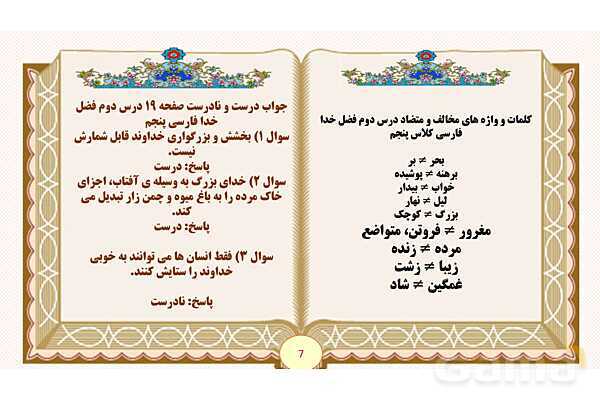 کلمات و واژه های مخالف و متضاد درس دوم فضل خدا
فارسی کلاس پنجم
بحر ≠ بر
برهنه ≠ پوشیده
خواب ≠ بیدار
لیل ≠ نهار
بزرگ ≠ کوچک
مغرور ≠ فروتن، متواضع
مرده ≠ زنده
زیبا ≠ زشت
غمگین ≠ شاد
جواب درست و نادرست صفحه ۱۹ درس دوم فضل
خدا فارسی پنجم
سوال ۱) بخشش و بزرگواری خداوند قابل شمارش
نیست.
پاسخ: درست
سوال ۲) خدای بزرگ به وسیله ی آفتاب، اجزای
خاک مرده را به باغ میوه و چمن زار تبدیل می
کند.
پاسخ: درست
سوال ۳) فقط انسان ها می توانند به خوبی
خداوند را ستایش کنند.
پاسخ: نادرست
7
Gama